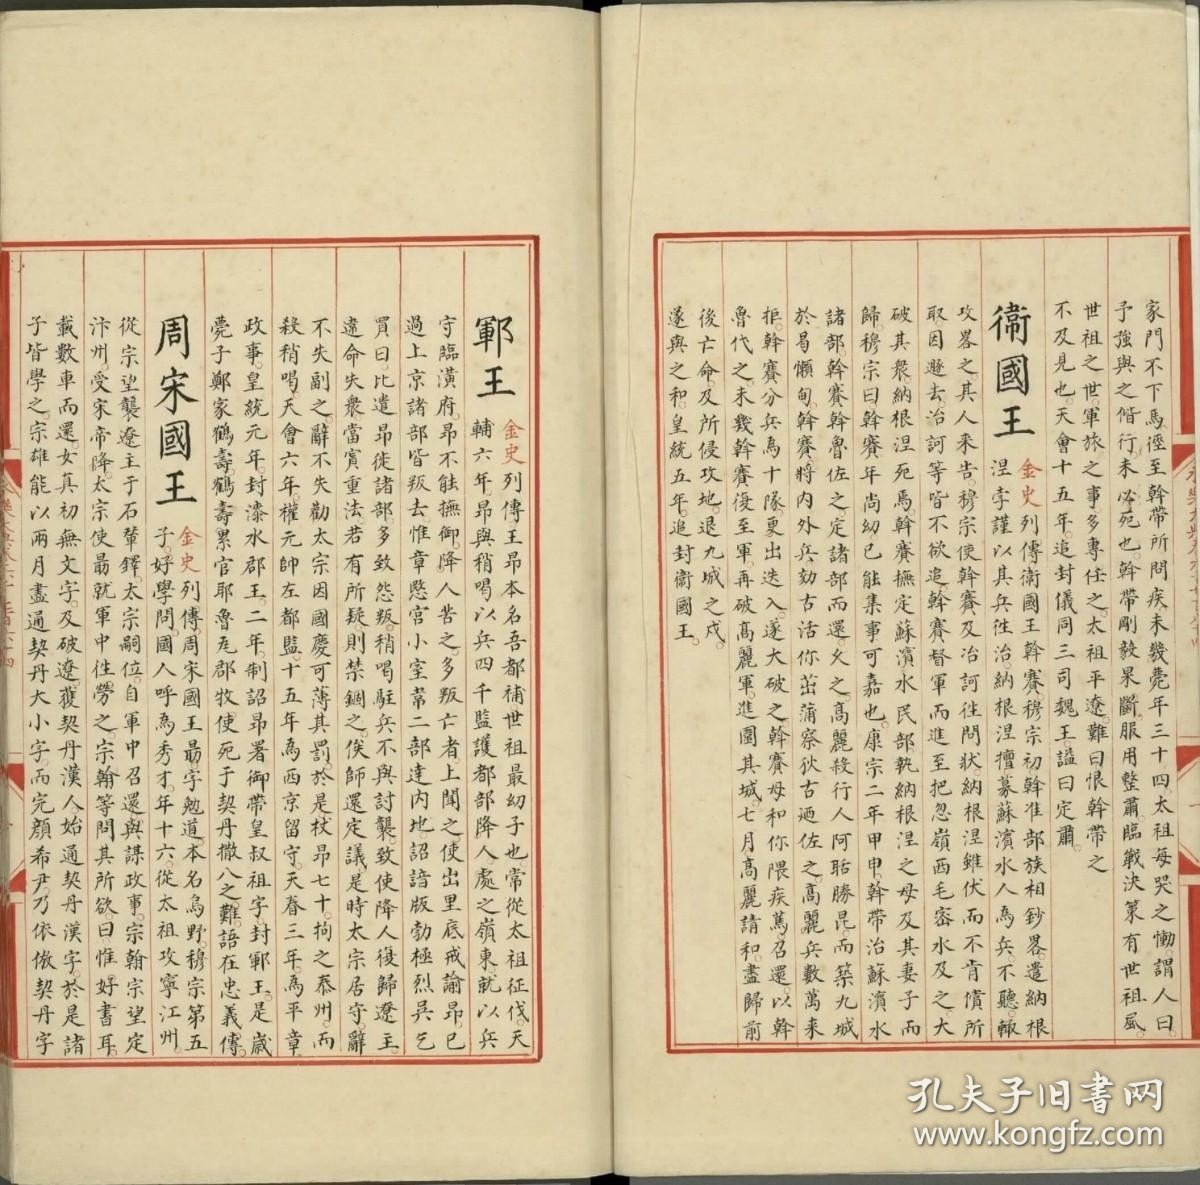 家門不下馬。徑至斡帶所問疾未幾薨年三十四。太祖每哭之慟。謂人曰。
予強與之偕行。未必死也。斡帶剛毅果斷。服用整肅。臨戰決策有世祖風。
世祖之世。軍旅之事。多專任之。太祖平遼。難曰恨斡帶之
不及見也。天會十五年。追封儀同三司魏王。謚曰定肅。
衛國王
金史列傳衛國王斡賽。穆宗初斡准部族相鈔畧。遣納根
涅孛謹以其兵徃治。納根涅擅募蘇濱水人為兵。不聽。輒
攻畧之。其人来告。穆宗使斡賽及冶訶徃問狀。納根涅雖伏而不肯償所
取因遯去。冶訶等皆不欲追。斡賽督軍而進至把忽嶺西毛密水及之。大
破其衆。納根涅死焉。斡賽撫定蘇濱水民部。執納根涅之母及其妻子而
歸。穆宗曰斡賽年尚幼已能集事可嘉也。康宗二年甲申。斡帶治蘇濱水
諸部。斡賽斡魯佐之。定諸部而還。乆之。高麗殺行人阿聒勝昆。而築九城
於曷懶甸。斡賽將内外兵劾古活你茁蒲察狄古迺佐之。高麗兵數萬来
拒。斡賽分兵為十隊。更出迭入。遂大破之。斡賽母和你隈疾篤。召還。以斡
魯代之。未幾斡賽復至軍。再破高麗軍。進圍其城。七月高麗請和。盡歸前
後亡命及所侵攻地。退九城之戍。
遂與之和。皇統五年。追封衛國王。
鄆王
金史列傳王昂本名吾都補世祖最幼子也。常從太祖征伐。天
輔六年。昂與稍喝以兵四千監護都部降人。處之嶺東。就以兵
守臨潢府。昂不能撫御。降人苦之。多叛亡者。上聞之使出里底戒諭昂。已
過上京。諸部皆叛去。惟章愍宮小室韋二部達内地。詔諳版勃極烈吳乞
買曰。比遣昂徙諸部。多致怨叛。稍喝駐兵不與討襲。致使降人復歸遼主。
違命失衆當寘重法。若有所疑。則禁錮之。俟師還定議。是時太宗居守。辭
不失副之。辭不失勸太宗因國慶可薄其罰。於是杖昂七十。拘之泰州。而
殺稍喝。天會六年。權元帥左都監。十五年為西京留守。天眷三年。為平章
政事。皇統元年。封漆水郡王。二年。制詔昂署御帶皇叔祖字封鄆王。是歲
薨子鄭家鶴壽。鶴壽累官耶魯瓦郡牧使死于契丹撒八之難。語在忠義傳。
周宋國王
金史列傳。周宋國王勗字勉道。本名烏野。穆宗第五
子。好學問。國人呼為秀才。年十六。從太祖攻寧江州。
從宗望襲遼主于石輦鐸。太宗嗣位。自軍中召還。與謀政事。宗翰宗望定
汴州。受宋帝降。太宗使勗就軍中徃勞之。宗翰等問其所欲。曰。惟好書耳。
載數車而還。女真初無文字。及破遼。獲契丹漢人。始通契丹漢字。於是諸
子皆學之。宗雄能以兩月盡通契丹大小字。而完顔希尹。乃依倣契丹字
孔夫子旧书网
www.kongfz.com